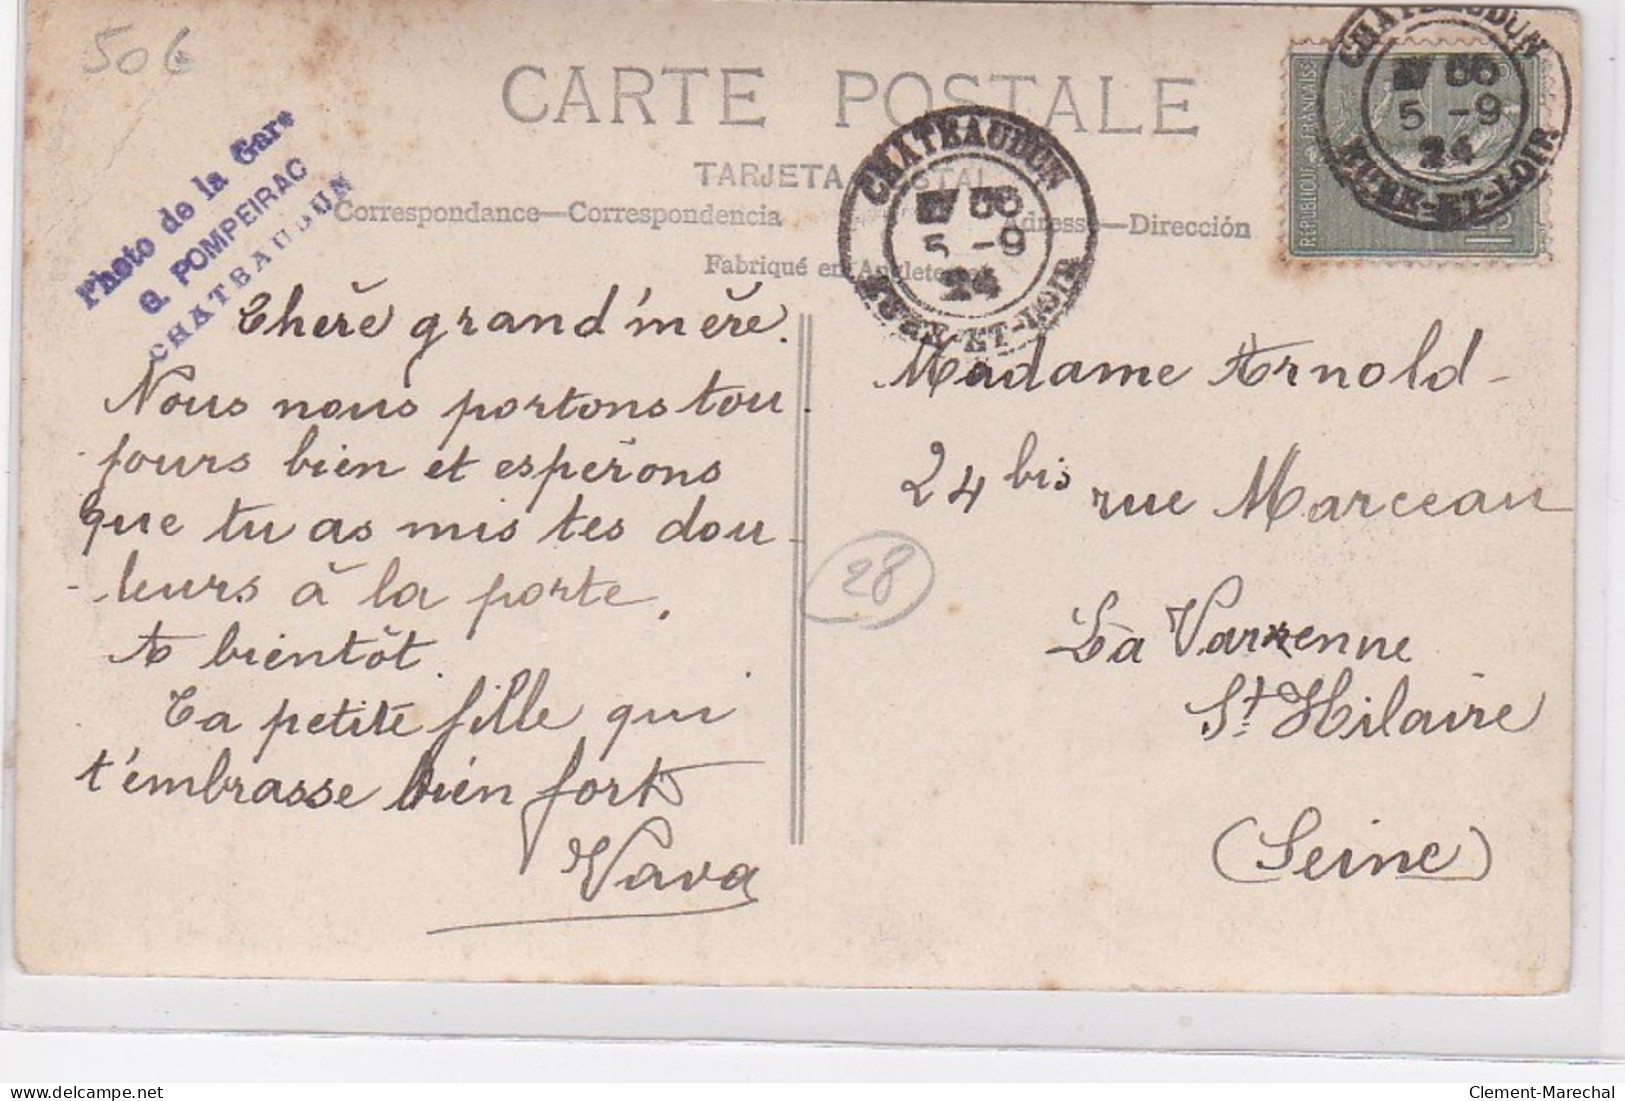 50€
Photo de la Gare
G. POMPEIRAC
CHATEAUDUN
CARTE POSTALE
TARJETA POSTAL
Correspondance—Correspondencia
Adresse—Dirección
Fabriqué en Angleterre
CHATEAUDUN
5 -9
24
EURE-ET-LOIR
CHATEAUDUN
5 -9
24
EURE-ET-LOIR
REPUBLIQUE FRANÇAISE
15
Chère grand'mère.
Nous nous portons tou
jours bien et espérons
que tu as mis tes dou-
-leurs à la porte.
A bientôt.
Ta petite fille qui
t'embrasse bien fort
Vava
Madame Arnold-
24 bis rue Marceau
La Varenne
St Hilaire
(Seine)
28
Clement-Marechal